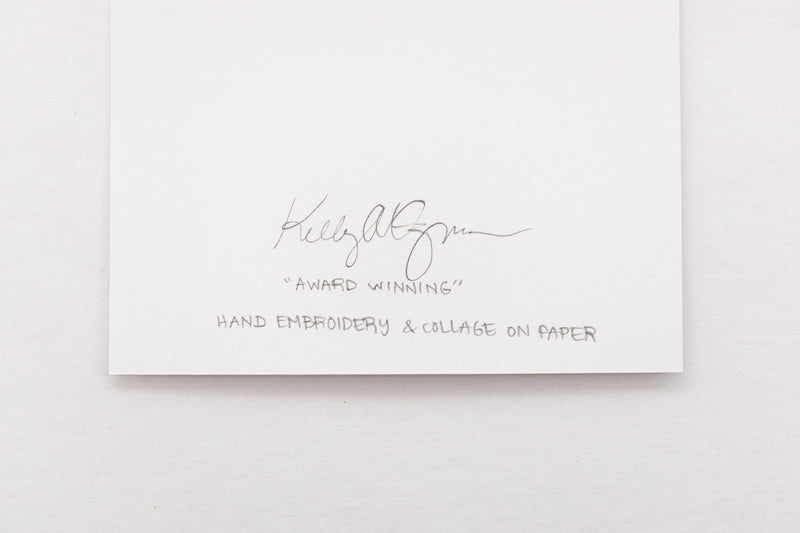 Kelly
"AWARD WINNING"
HAND EMBROIDERY & COLLAGE ON PAPER